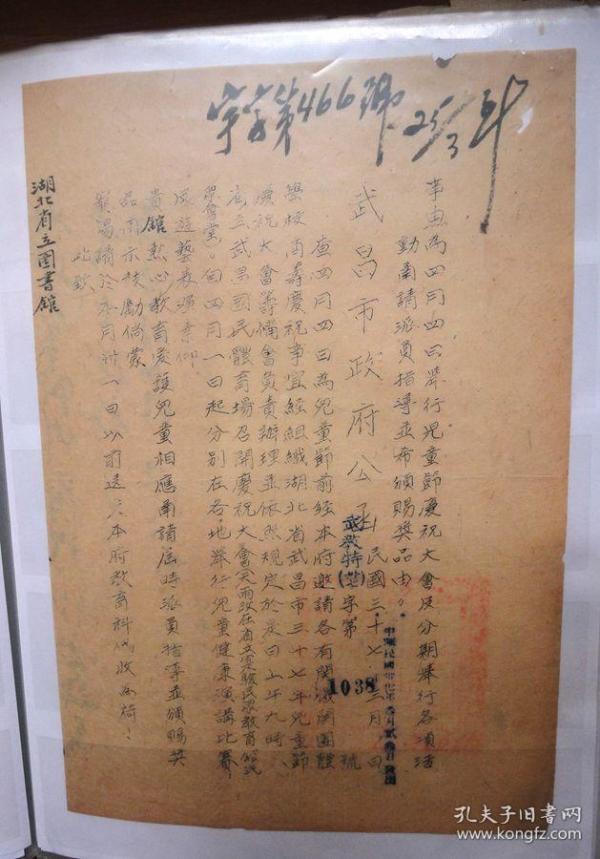 字第466號 25/3
事由為四月四日舉行兒童節慶祝大會及分期舉行各項活
動函請派員指導並希頒賜獎品由。
武昌市政府公函
民國三十七年三月 日
武教特(世)字第
1038
號
查四月四日為兒童節前經本府邀請各有關機關團體
學校商籌慶祝事宜經組織湖北省武昌市三十七年兒童節
慶祝大會籌備會負責辦理並依照規定於是日上午九時
在武昌國民體育場召開慶祝大會天雨改在省立實驗民眾教育館
學會堂。自四月一日起分別在各地舉行兒童健康演講比賽
及遊藝表演素仰
貴館熱心教育愛護兒童相應函請屆時派員指導並頒賜獎
品用示扶勵倘蒙
賜請於本月卅一日以前送交本府教育科代收為荷!
此致
湖北省立圖書館
孔夫子旧书网
www.kongfz.com